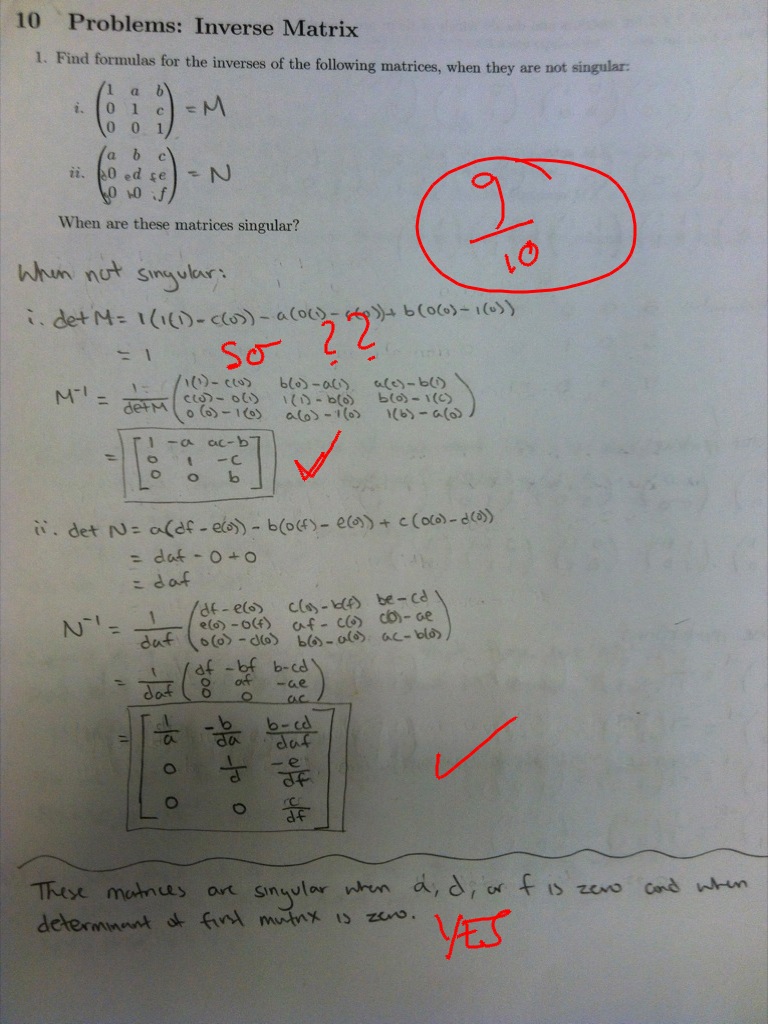 10 Problems: Inverse Matrix
1. Find formulas for the inverses of the following matrices, when they are not singular:
i. (1 a b
0 1 c
0 0 1) = M
ii. (a b c
0 d e
0 0 f) = N
When are these matrices singular?
9
10
When not singular:
i. det M = 1(1(1) - c(0)) - a(0(1) - c(0)) + b(0(0) - 1(0))
= 1
so ??
M⁻¹ = 1/det M (1(1)-c(0) b(0)-a(1) a(c)-b(1)
c(0)-0(1) 1(1)-b(0) b(0)-1(c)
0(0)-1(0) a(0)-1(0) 1(b)-a(0))
= [1 -a ac-b
0 1 -c
0 0 b]
ii. det N = a(df - e(0)) - b(0(f) - e(0)) + c(0(0) - d(0))
= daf - 0 + 0
= daf
N⁻¹ = 1/daf (df-e(0) c(0)-b(f) be-cd
e(0)-0(f) af-c(0) c(0)-ae
0(0)-d(0) b(0)-a(0) ac-b(0))
= 1/daf (df -bf b-cd
0 af -ae
0 0 ac)
= [1/a -b/da b-cd/daf
0 1/d -e/df
0 0 c/df]
These matrices are singular when a, d, or f is zero and when
determinant of first matrix is zero.
YES